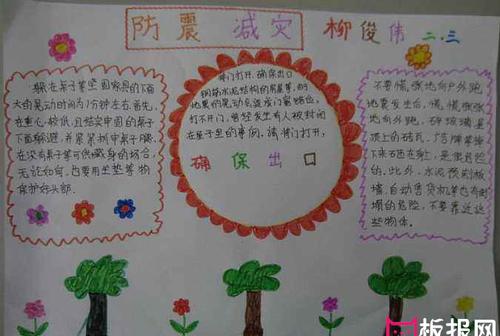 防震 减灾 柳俊伟 二.三
躲在桌子等坚固家具的下面
大的晃动时间约1分钟左右。首先,
在重心较低、且结实牢固的桌子
下面躲避,并紧紧抓牢桌子腿。
在没有桌子等可供藏身的场合,
无论如何,也要用坐垫等物
保护好头部。
将门打开,确保出口
钢筋水泥结构的房屋等,由于
地震的晃动会造成门窗错位,
打不开门,曾经发生有人被封闭
在屋子里的事例。请将门打开,
确保出口
不要慌张地向户外跑
地震发生后,慌慌张张
地向外跑,碎玻璃、屋
顶上的砖瓦、广告牌等掉
下来砸在身上,是很危险
的。此外,水泥预制板
墙、自动售货机等也有倒
塌的危险,不要靠近这
些物体。
板报网